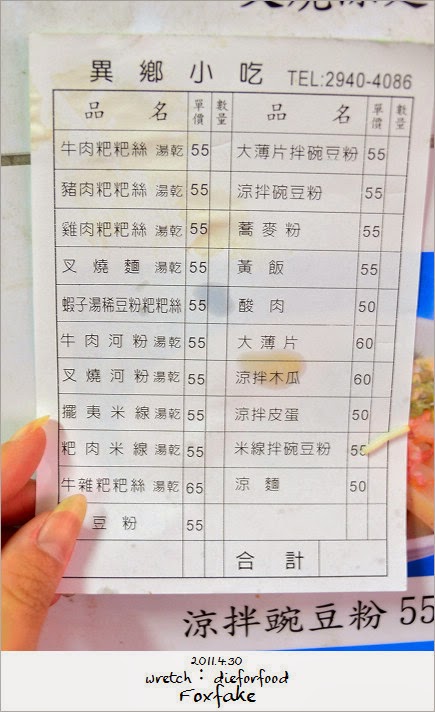 異鄉小吃 TEL:2940-4086
品名 單價 數量 品名 單價 數量
牛肉粑粑絲 湯乾 55 大薄片拌碗豆粉 55
豬肉粑粑絲 湯乾 55 涼拌碗豆粉 55
雞肉粑粑絲 湯乾 55 蕎麥粉 55
叉燒麵 湯乾 55 黃飯 55
蝦子湯稀豆粉粑粑絲 55 酸肉 50
牛肉河粉 湯乾 55 大薄片 60
叉燒河粉 湯乾 55 涼拌木瓜 60
擺夷米線 湯乾 55 涼拌皮蛋 50
粑肉米線 湯乾 55 米線拌碗豆粉 55
牛雜粑粑絲 湯乾 65 涼麵 50
豆粉 55
合計
涼拌豌豆粉 55
2011.4.30
wretch：dieforfood
Foxfake